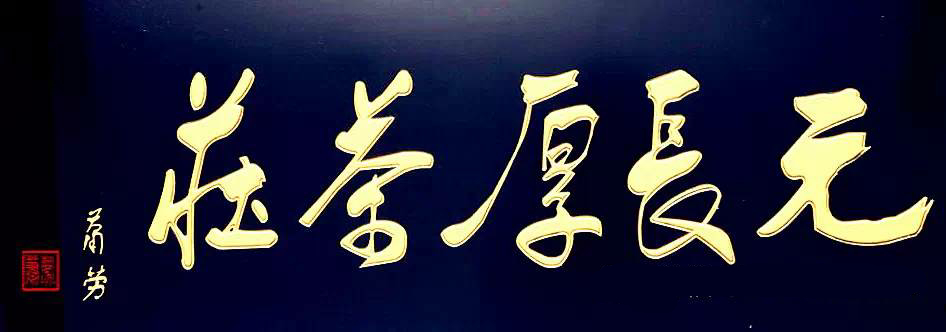 元長厚茶莊
蕭勞